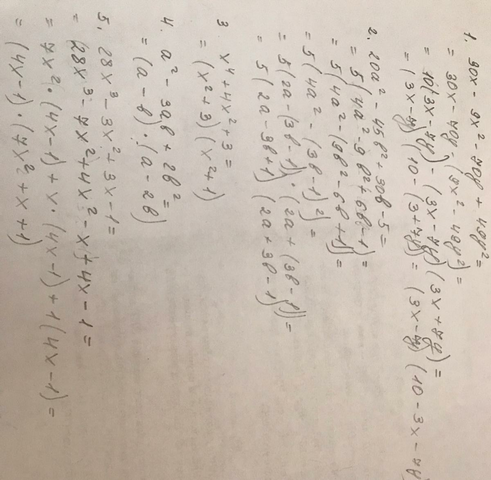 1. 30x - 9x² - 70y + 49y² =
= 30x - 70y - (9x² - 49y²) =
= 10(3x - 7y) - (3x - 7y)(3x + 7y) =
= (3x - 7y)(10 - (3x + 7y)) = (3x - 7y)(10 - 3x - 7y)
2. 20a² - 45b² + 30b - 5 =
= 5(4a² - 9b² + 6b - 1) =
= 5(4a² - (9b² - 6b + 1)) =
= 5(4a² - (3b - 1)²) =
= 5(2a - (3b - 1)) · (2a + (3b - 1)) =
= 5(2a - 3b + 1)(2a + 3b - 1)
3. x⁴ + 4x² + 3 =
= (x² + 3)(x² + 1)
4. a² - 3ab + 2b² =
= (a - b) · (a - 2b)
5. 28x³ - 3x² + 3x - 1 =
= 28x³ - 7x² + 4x² - x + 4x - 1 =
= 7x² · (4x - 1) + x · (4x - 1) + 1(4x - 1) =
= (4x - 1) · (7x² + x + 1)